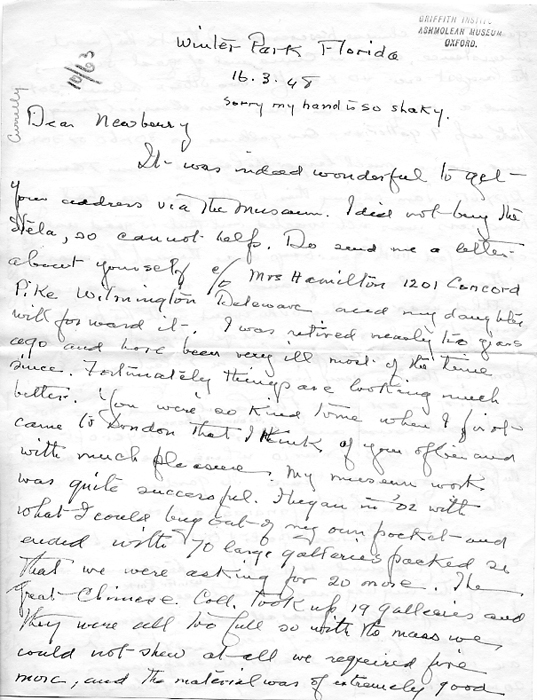 GRIFFITH INSTITUTE
ASHMOLEAN MUSEUM
OXFORD.
10/63
Currelly
Winter Park Florida
16.3.48
Sorry my hand is so shaky.
Dear Newberry
It was indeed wonderful to get
your address via the Museum. I did not buy the
Stela, so cannot help. Do send me a letter
about yourself c/o Mrs Hamilton 1201 Concord
Pike Wilmington Delaware and my daughter
will forward it. I was retired nearly two years
ago and have been very ill most of the time
since. Fortunately things are looking much
better. You were so kind to me when I first
came to London that I think of you often and
with much pleasure. My museum work
was quite successful. I began in '02 with
what I could buy out of my own pocket and
ended with 70 large galleries packed so
that we were asking for 20 more. The
great Chinese Coll. took up 19 galleries and
they were all too full so with the mass we
could not show at all we required five
more, and the material was of extremely good